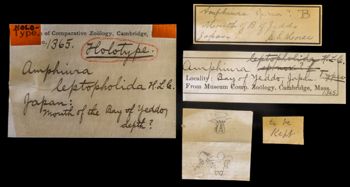 HOLO-
Type. of Comparative Zoology, Cambridge,
1365. Holotype.
Amphiura
leptopholida H.L.C.
Japan:
Mouth of the Bay of Yeddo,
depth?
Amphiura B
Mouth of B of Yeddo
Japan
leptopholida H.L.C.
Amphiura
Locality: Bay of Yeddo, Japan.
From Museum Comp. Zoology, Cambridge, Mass.
1365
to be
Kept